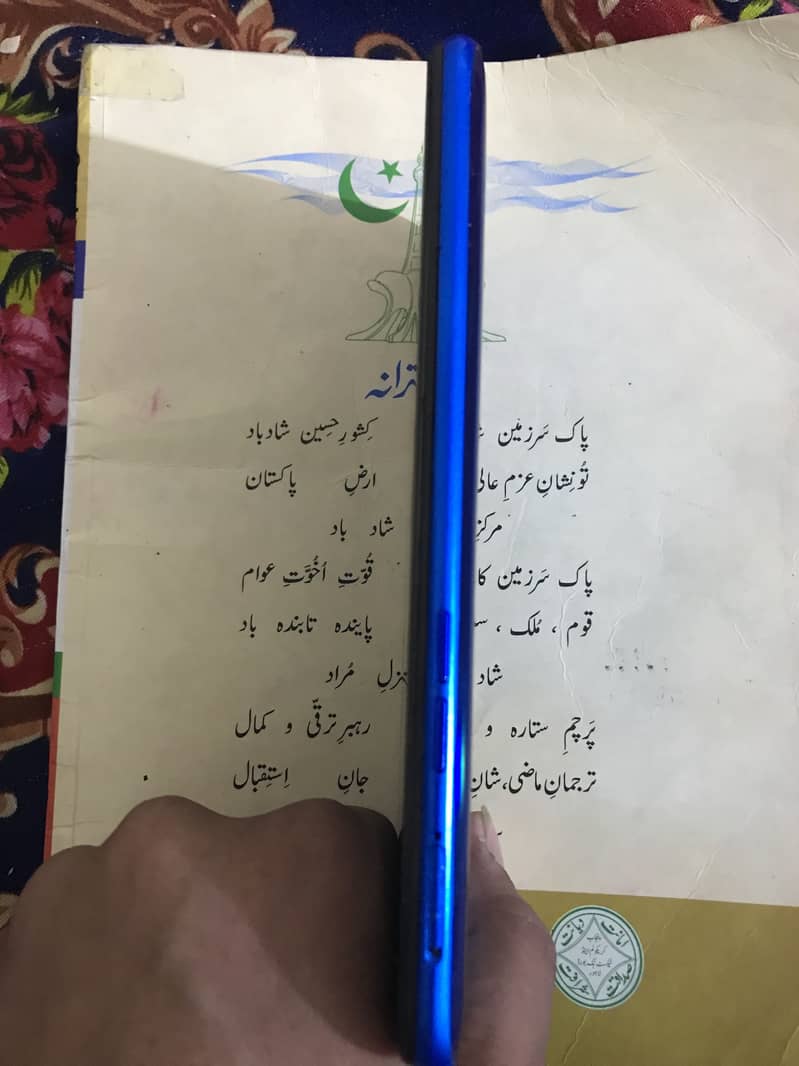 ترانہ
پاک سَرزمین کِشورِحسِین شادباد
تُو نِشانِ عزمِ عالی ارضِ پاکستان
مرکزِ شاد باد
پاک سَرزمین کا قُوّتِ اُخُوَّتِ عوام
قوم ، مُلک ، پایندہ تابندہ باد
شاد مُراد
پَرچمِ ستارہ و رہبرِ ترقّی و کمال
ترجمانِ ماضی، شانِ جانِ اِستِقبال
امانت
دیانت
صداقت
شرافت
پنجاب
لاہور